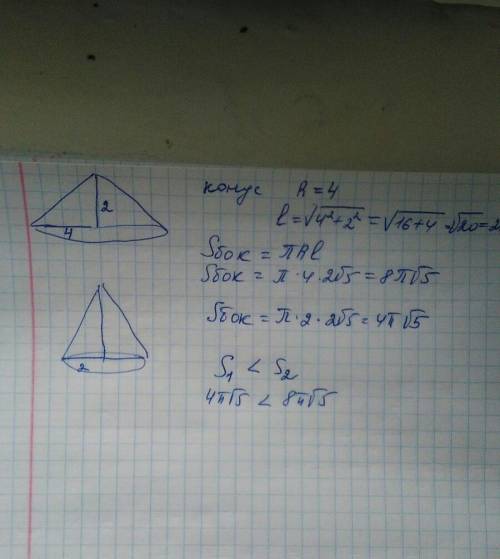 2
4
конус R = 4
l = √4²+2² = √16+4 = √20 = 2
Sбок = πRl
Sбок = π · 4 · 2√5 = 8π√5
Sбок = π · 2 · 2√5 = 4π√5
2
S₁ < S₂
4π√5 < 8π√5